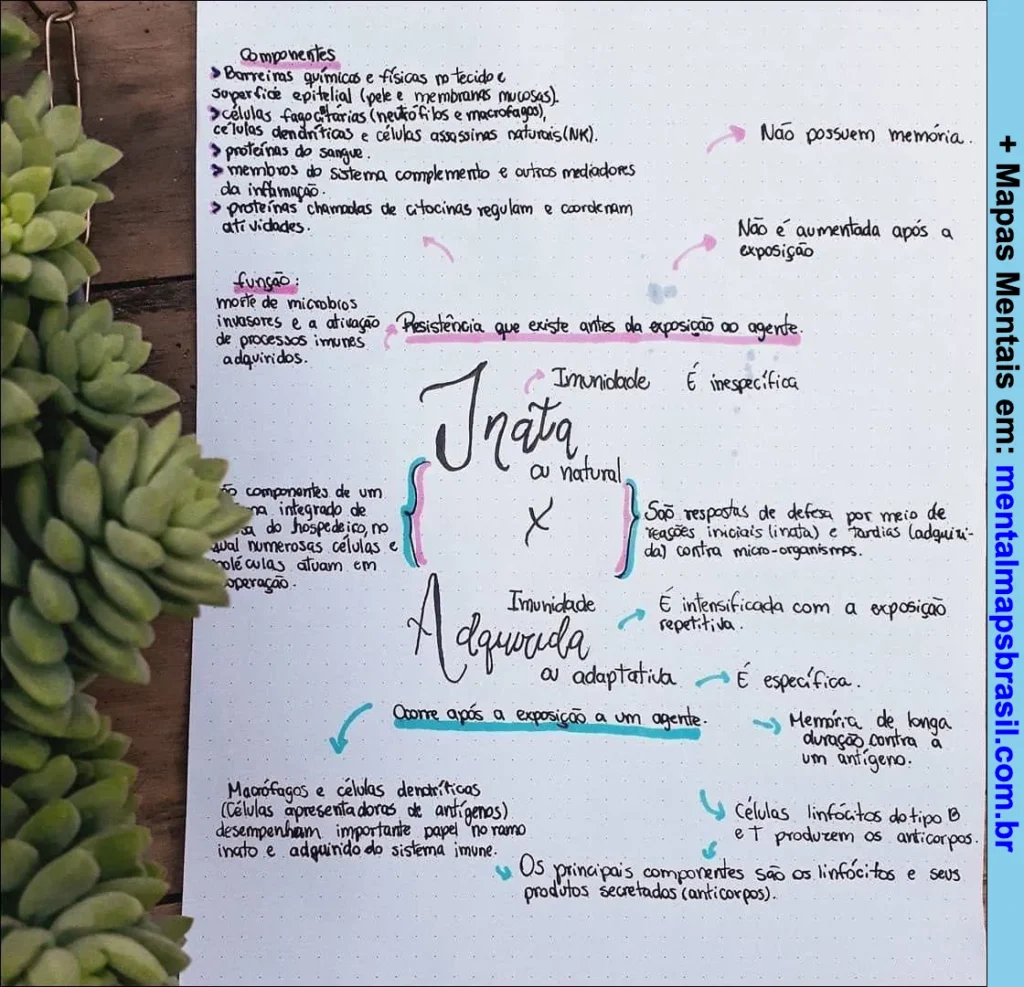 Componentes
> Barreiras químicas e físicas no tecido e
superfície epitelial (pele e membranas mucosas).
> células fagocitárias (neutrófilos e macrófagos),
células dendríticas e células assassinas naturais (NK).
> proteínas do sangue.
> membros do sistema complemento e outros mediadores
da inflamação.
> proteínas chamadas de citocinas regulam e coordenam
atividades.
Não possuem memória.
Não é aumentada após a
exposição
função:
morte de micróbios
invasores e a ativação
de processos imunes
adquiridos.
Resistência que existe antes da exposição ao agente.
Imunidade É inespecífica
Inata
ou natural
X
componentes de um
integrado de
do hospedeiro, no
numerosas células e
atuam em
São respostas de defesa por meio de
reações iniciais (inata) e tardias (adquiri-
da) contra micro-organismos.
Imunidade
Adquirida
ou adaptativa
É intensificada com a exposição
repetitiva.
É específica.
Ocorre após a exposição a um agente.
Memória de longa
duração contra a
um antígeno.
Macrófagos e células dendríticas
(Células apresentadoras de antígenos)
desempenham importante papel no ramo
inato e adquirido do sistema imune.
Células linfócitos do tipo B
e T produzem os anticorpos.
Os principais componentes são os linfócitos e seus
produtos secretados (anticorpos).
+ Mapas Mentais em: mentalmapsbrasil.com.br